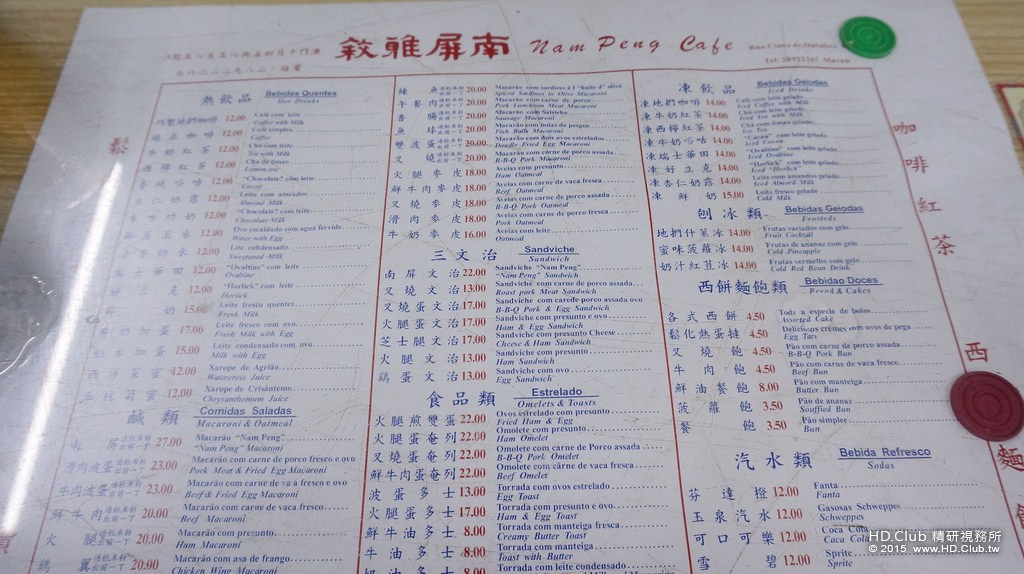 南屏雅敘 Nam Peng Cafe
Rua Cinco de Outubro
Tel: 28922267 Macau
熱飲品 Bebidas Quentes
Hot Drinks
12.00 Café com leite
Coffee with Milk
12.00 Café simples
Coffee
牛奶紅茶 12.00 Chá com leite
Tea with Milk
西檸紅茶 12.00 Chá de limão
Lemon tea
12.00 "Chocolate" com leite
Cocoa
杏仁奶露 12.00 Leite com amêndoa
Almond Milk
12.00 "Chocolate" com leite
Chocolate Milk
12.90 Ovo escaldado com agua fervide
Water with Egg
12.00 Leite condensado
Sweetened Milk
12.00 "Ovaltine" com leite
Ovaltine
12.00 "Horlick" com leite
Horlick
15.00 Leite fresco quentes
Fresh Milk
17.00 Leite fresco com ovo
Fresh Milk with Egg
15.00 Leite condensado com ovo
Milk with Egg
西洋菜蜜 12.00 Xarope de Agrião
Watercress Juice
12.00 Xarope de Crisântemo
Chrysanthemum Juice
鹹類 Comidas Saladas
Macaroni & Oatmeal
南屏 27.00 Macarão "Nam Peng"
"Nam Peng" Macaroni
滑肉波蛋 23.00 Macarão com carne de porco fresco e ovo
Pork Meat & Fried Egg Macaroni
牛肉波蛋 23.00 Macarão com carne de vaca fresco e ovo
Beef & Fried Egg Macaroni
鮮牛肉 20.00 Macarão com carne de vaca fresco
Beef Macaroni
火腿 20.00 Macarão com presunto
Ham Macaroni
雞翼 20.00 Macarão com asa de frango
Chicken Wing Macaroni
辣魚 20.00 Macarão com sardines á "huile d' olive
Spiced Sardines in Olive Macaroni
午餐肉 20.00 Macarão com carne de porco
Pork Luncheon Meat Macaroni
香腸 20.00 Macarão com Salsicha
Sausage Macaroni
魚球 20.00 Macarão com bolas de peugus
Fish Balls Macaroni
雙波蛋 20.00 Macarão com dois ovos estrelados
Doudle Fried Egg Macaroni
叉燒 20.00 Macarão com carne de porco assada
B-B-Q Pork Macaroni
火腿麥皮 18.00 Aveias com presunto
Ham Oatmeal
鮮牛肉麥皮 18.00 Aveias com carne de vaca fresca
Beef Oatmeal
叉燒麥皮 18.00 Aveias com carne de porco assada
B-B-Q Pork Oatmeal
滑肉麥皮 18.00 Aveias com carne de porco fresca
Pork Oatmeal
牛奶麥皮 16.00 Aveias com leite
Oatmeal
三文治 Sandviche
Sandwich
南屏文治 22.00 Sandviche "Nam Peng"
"Nam Peng" Sandwich
叉燒文治 13.00 Sandviche com carne de porco assada
Roast pork Meat Sandwich
叉燒蛋文治 17.00 Sandviche com carede porco assada ovo
B-B-Q Pork & Egg Sandwich
火腿蛋文治 17.00 Sandviche com presunto e ovo
Ham & Egg Sandwich
芝士腿文治 17.00 Sandviche com presunto Cheese
Cheese & Ham Sandwich
火腿文治 13.00 Sandviche com presunto
Ham Sandwich
鷄蛋文治 13.00 Sandviche com ovo
Egg Sandwich
食品類 Estrelado
Omelets & Toasts
火腿煎雙蛋 22.00 Ovos estrelado com presunto
Fried Ham & Egg
火腿奄列 22.00 Omolete com presunto
Ham Omelet
叉燒奄列 22.00 Omolete com carne de Porco assada
B-B-Q Pork Omelet
鮮牛肉蛋奄列 22.00 Omolete com cârne de vaca fresca
Beef Omelet
波蛋多士 13.00 Torrada com ovos estrelado
Egg Toast
火腿蛋多士 17.00 Torrada com presunto e ovo
Ham & Egg Toast
鮮牛油多士 8.00 Torrada com manteiga fresca
Creamy Butter Toast
牛油多士 8.00 Torrada com manteiga
Toast with Butter
奶油多士 8.00
凍飲品 Bebidas Geiodas
Iced Drinks
凍地捫咖啡 14.00 Café com leite gelado
Iced Coffee with Milk
凍牛奶紅茶 14.00 Chá com leite gelado
Iced Tea with Milk
凍西檸紅茶 14.00 Chá com limão gelado
Ice Tea
凍牛奶唂咕 14.00 "Cacau" com leite gelado
Iced Cocoa
凍瑞士華田 14.00 "Ovaltine" com leite gelado
Iced Ovaltine
凍好立克 14.00 "Horlick" com leite gelado
Iced "Horlick"
凍杏仁奶露 14.00 Leite com amandoa gelado
Iced Almond Milk
凍鮮奶 15.00 Leite fresco gelado
Cold Milk
刨冰類 Bebidas Geiodas
Frosteds
地捫什菓冰 14.00 Frutas variados com gelo
Fruit Cocktail
蜜味菠蘿冰 14.00 Frutas de ananaz com gelo
Cold Pineapple
奶汁紅荳冰 14.00 Frutas vermelho com gelo
Cold Red Bean Drink
西餅麵飽類 Bebidao Doces
Breed & Cakes
各式西餅 4.50 Toda a especie de bolos
Assorted Cake
鬆化熱蛋撻 4.50 Delicious crémes com ovos de pega
Egg Tart
叉燒飽 4.50 Pão com carne de porco assada
B-B-Q Pork Bun
牛肉飽 4.50 Pão com carne de vaca fresco
Beef Bun
鮮油餐飽 8.00 Pão com manteiga
Butter Bun
菠蘿飽 3.50 Pão de ananaz
Souffied Bun
餐飽 3.50 Pão simples
Bun
汽水類 Bebida Refresco
Sodas
芬達橙 12.00 Fanta
Fanta
玉泉汽水 12.00 Gasosas Schweppes
Schweppes
可口可樂 12.00 Coca Cola
Caca Cola
雪碧 12.00 Sprite
Sprite
鬆
咖啡紅茶
西
麵
HD.Club 精研視務所
© 2015 www.HD.Club.tw